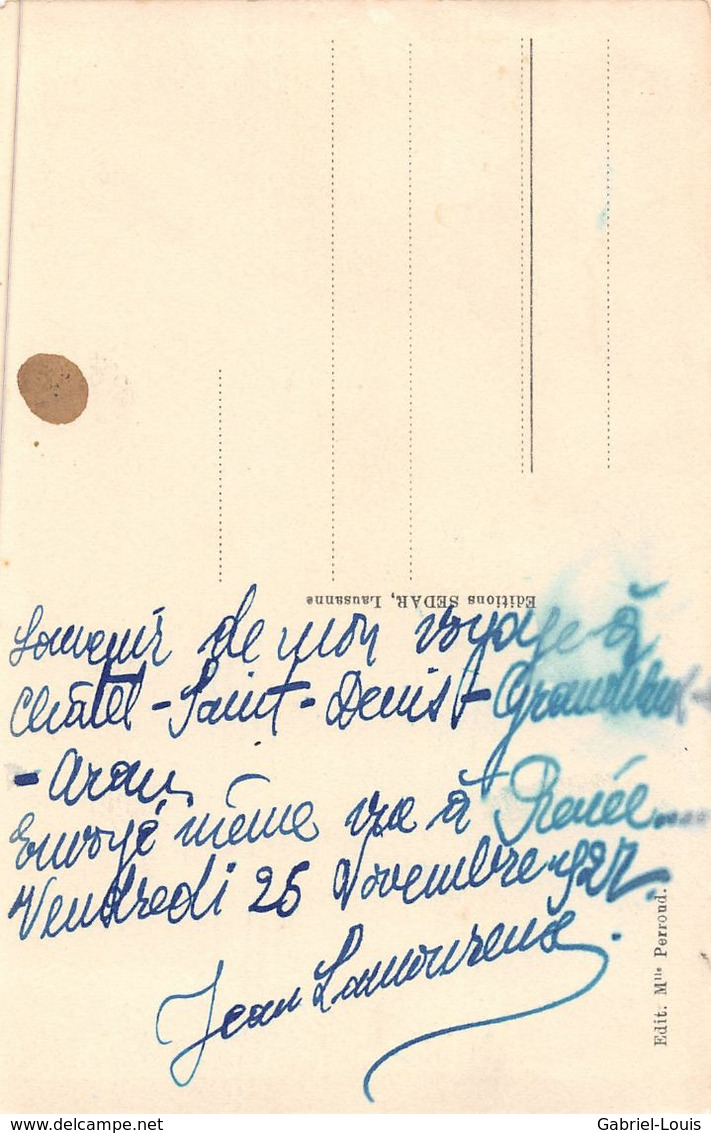 Editions SEDAR, Lausanne
Souvenir de mon voyage à
Châtel-Saint-Denis-
-Aran
Envoyé même vue à Renée....
Vendredi 25 Novembre 1927.
Jean Lamoureux.
Edit. Mlle Perroud.
delcampe.net
Gabriel-Louis